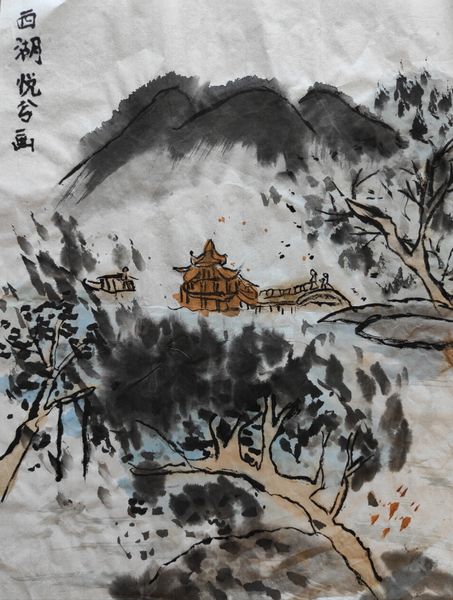 西湖悦兮画